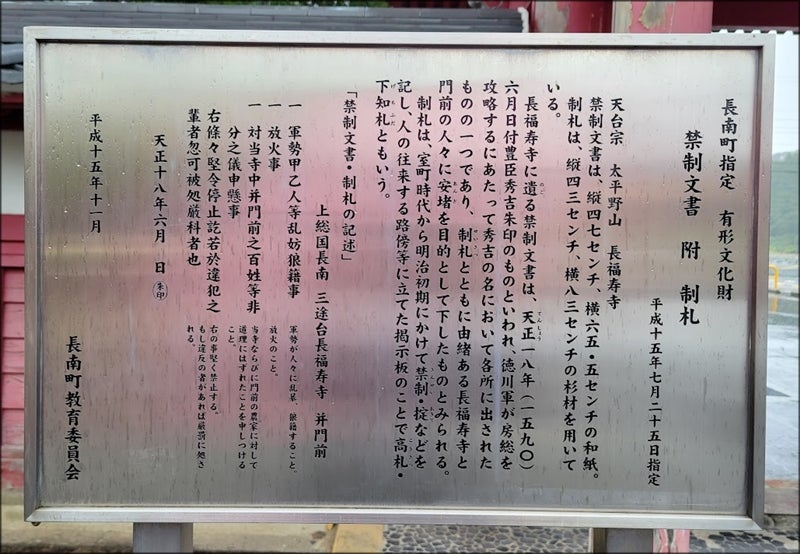 長南町指定　有形文化財
禁制文書　附　制札
平成十五年七月二十五日指定
天台宗　太平野山　長福寿寺
禁制文書は、縦四七センチ、横六五・五センチの和紙。
制札は、縦四三センチ、横八三センチの杉材を用いて
いる。
長福寿寺に遺る禁制文書は、天正一八年（一五九〇）
六月日付豊臣秀吉朱印のものといわれ、徳川軍が房総を
攻略するにあたって秀吉の名において各所に出された
ものの一つであり、制札とともに由緒ある長福寿寺と
門前の人々に安堵を目的として下したものとみられる。
制札は、室町時代から明治初期にかけて禁制・掟などを
記し、人の往来する路傍等に立てた掲示板のことで高札・
下知札ともいう。
「禁制文書・制札の記述」
上総国長南　三途台長福寿寺　并門前
一　軍勢甲乙人等乱妨狼籍事
軍勢が人々に乱暴、狼籍すること。
一　放火事
放火のこと。
一　対当寺中并門前之百姓等非
分之儀申懸事
当寺ならびに門前の農家に対して
道理にはずれたことを申しつける
こと。
右條々堅令停止訖若於違犯之
輩者忽可被処厳科者也
右の事堅く禁止する。
もし違反の者があれば厳罰に処さ
れる。
天正十八年六月　日　朱印
平成十五年十一月
長南町教育委員会